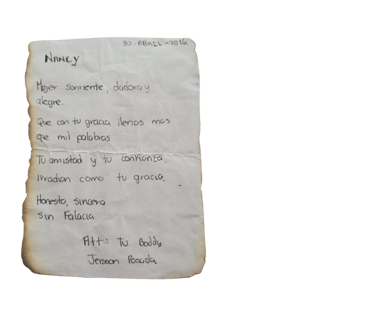 30-ABRIL-2016
NANCY
Mujer sonriente, dadora y
alegre.
Que con tu gracia llenas mas
que mil palabras
Tu amistad y tu confianza,
Irradian como tu gracia,
Honesta, sincera
Sin Falacia
Att: Tu Boddy
Jeisson Posada